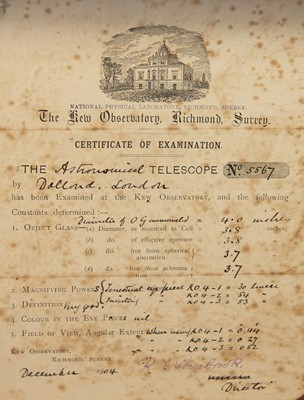 NATIONAL PHYSICAL LABORATORY, RICHMOND, SURREY.
The Kew Observatory, Richmond, Surrey.
CERTIFICATE OF EXAMINATION.
THE Astronomical TELESCOPE No 5567
by Dollond, London
has been Examined at the KEW OBSERVATORY, and the following
Constants determined :—
Diameter of O.G. unmounted = 4.0 inches
1. OBJECT GLASS— (a) Diameter, as mounted in Cell = 3.8
(b) do. of effective aperture 3.8
(c) do. free from spherical
aberration 3.7
(d) do. free from achromatism 3.7
2. MAGNIFYING POWERS Terrestrial eye piece R.O. 4-1 = 30
Inverting R.O. 4-2 = 54
3. DEFINITION Very good. R.O. 4-3 = 53
4. COLOUR IN THE EYE POWERS nil
5. FIELD OF VIEW, Angular Extent When using R.O. 4-1 = 0.44
R.O. 4-2 = 0.27
R.O. 4-3 = 0.52
KEW OBSERVATORY,
RICHMOND, SURREY.
December 1904
Director